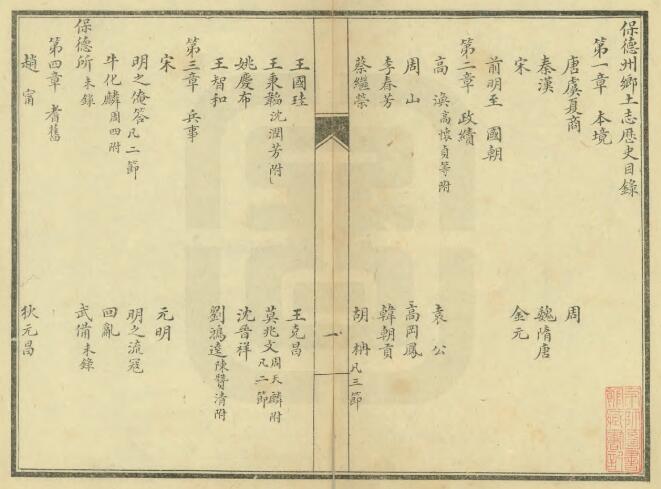 保德州鄉土志歷史目錄
第一章 本境
唐虞夏商 周
秦漢 魏隋唐
宋 金元
前明至國朝
第二章 政績
高渙高懷貞等附 袁公
周山 高岡鳳
李春芳 韓朝貢
蔡繼榮 胡柟凡三節
王國珪 王克昌
王秉韜沈潤芳附 莫兆文周天麟附凡二節
姚慶布 沈晉祥
王智和 劉鴻逵陳贊清附
第三章 兵事
宋 元明
明之俺答凡二節 明之流寇
牛化麟周四附 回亂
保德所未錄 武備未錄
第四章 耆舊
趙甯 狄元昌
一